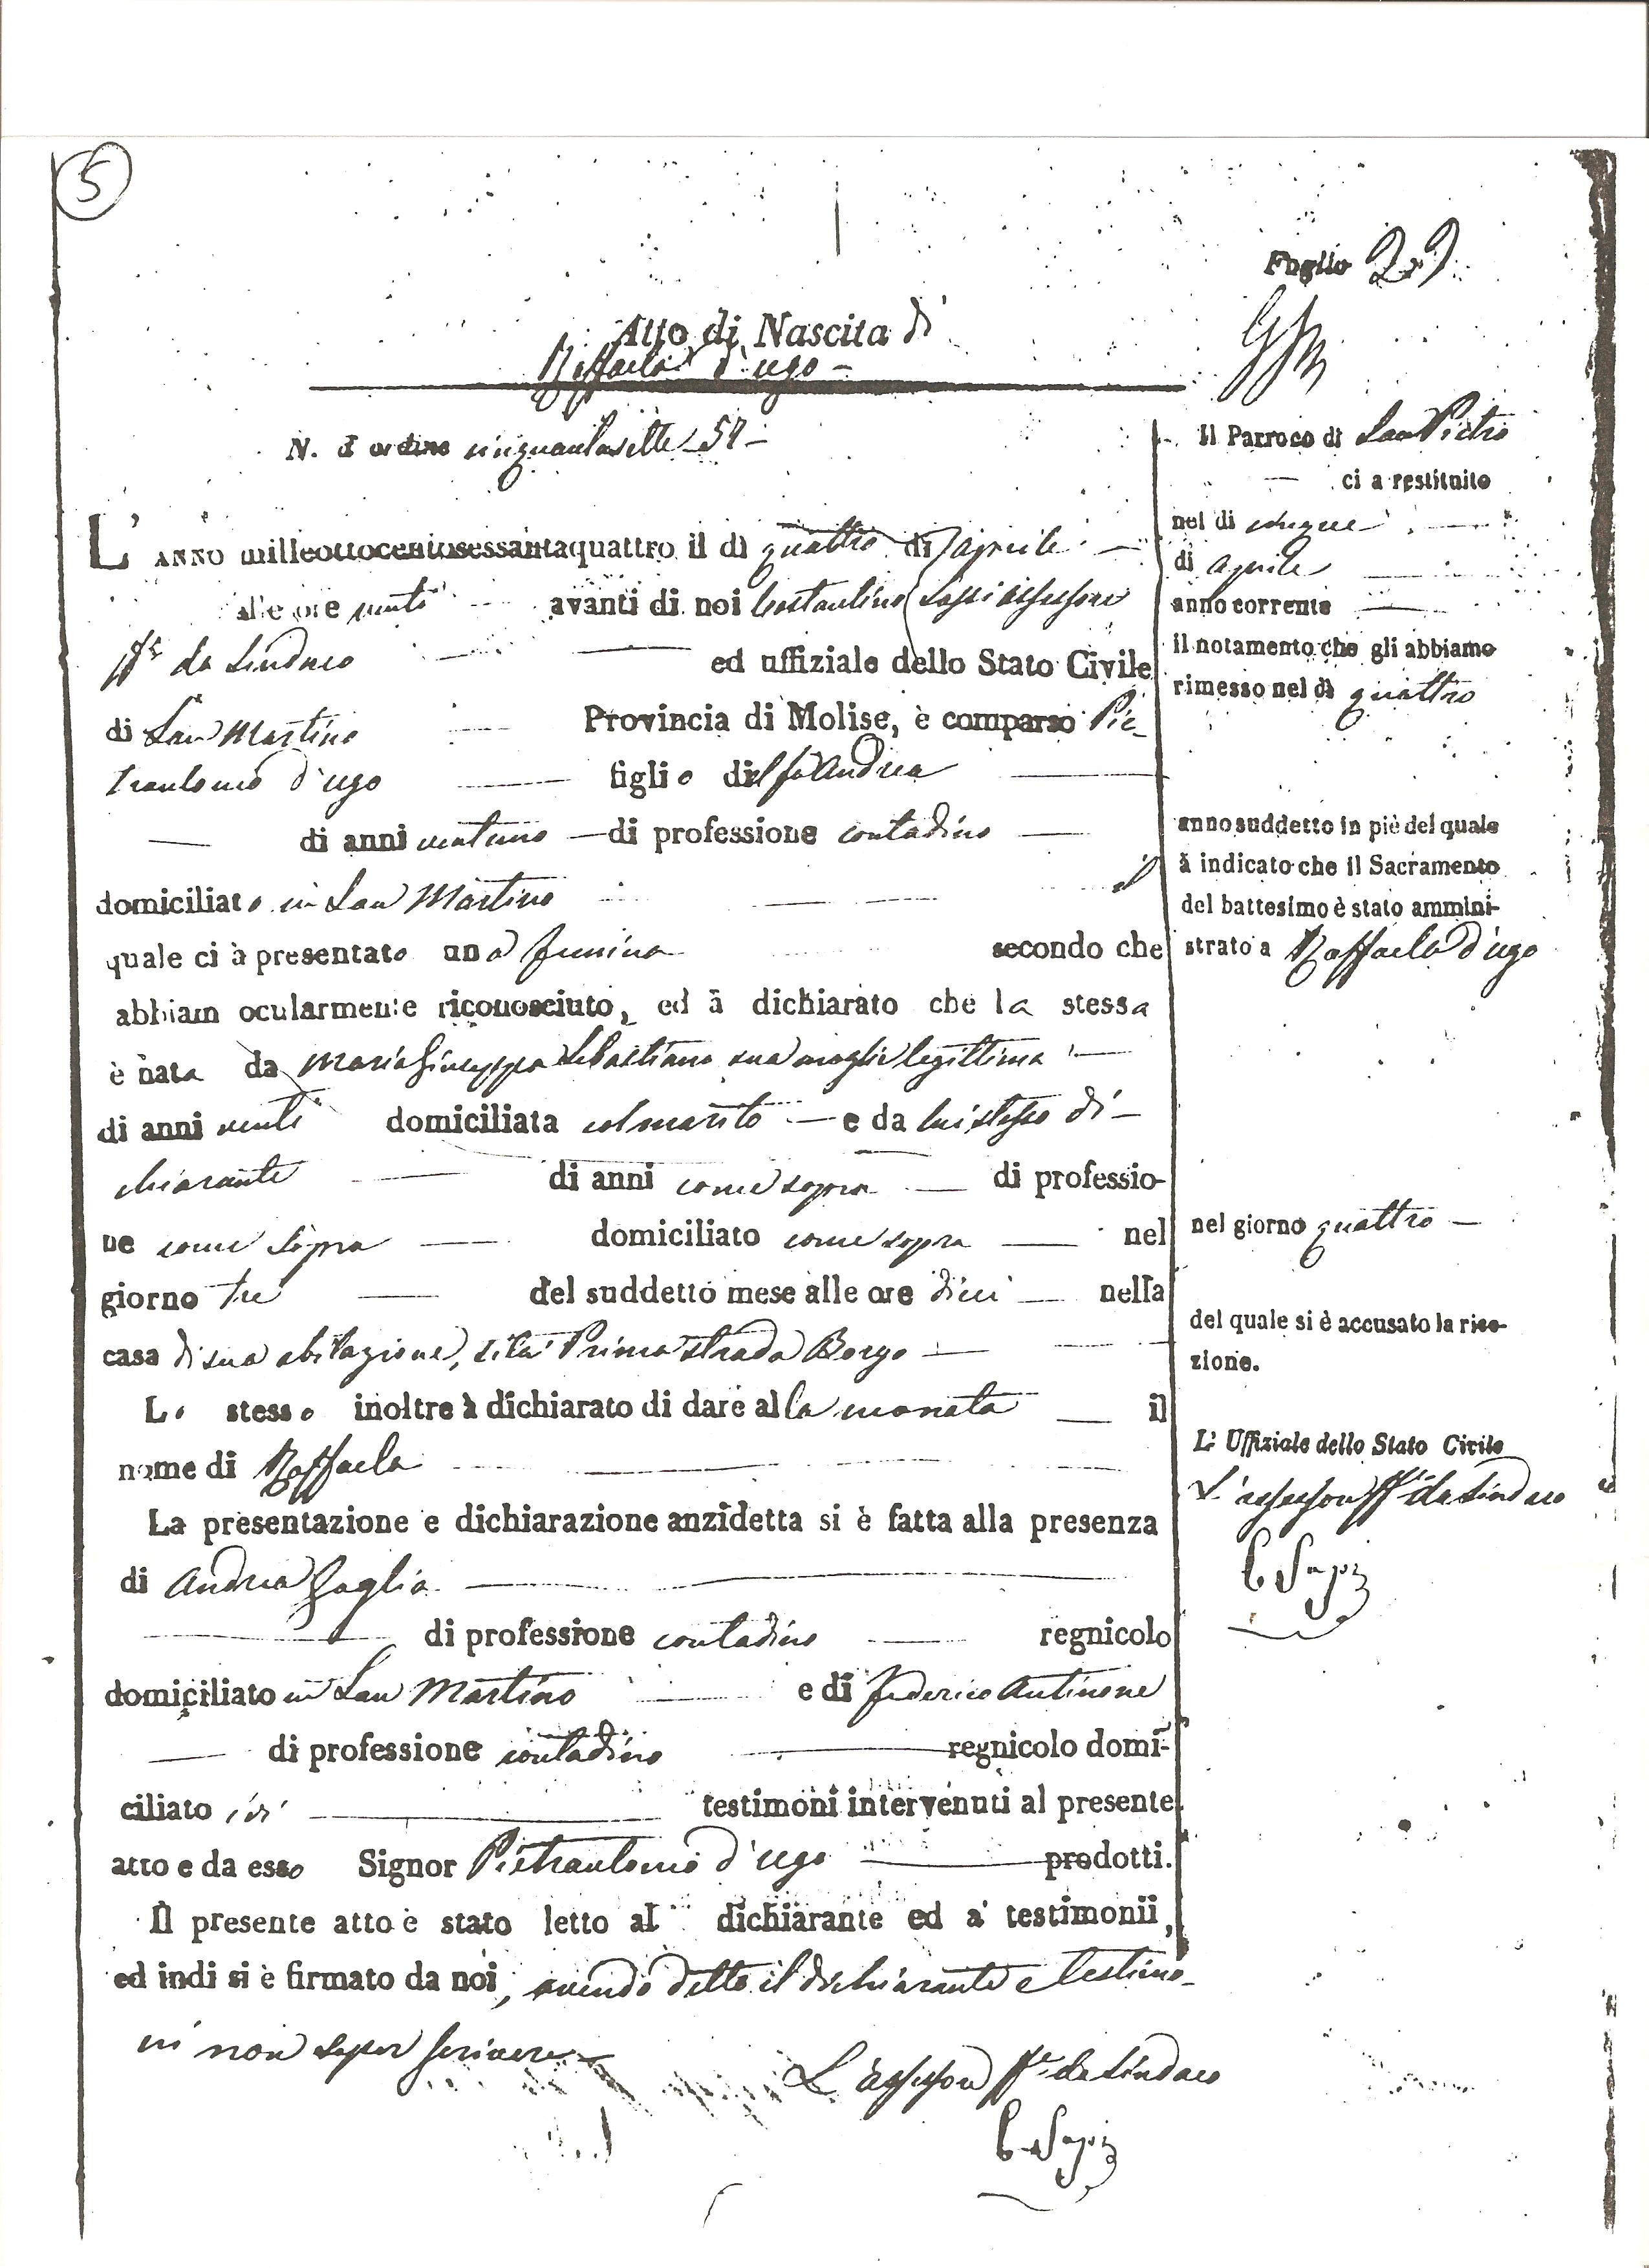 5
Foglio 29
Atto di Nascita di
Raffaela d'ugo
N. d'ordine cinquantasette 57
L'ANNO milleottocentosessantaquattro il dì quattro di aprile
alle ore venti avanti di noi Costantino Sassi assessore
ff.e da Sindaco ed uffiziale dello Stato Civile
di San Martino Provincia di Molise, è comparso Pie-
trantonio d'ugo figlio del fu Andrea
di anni ventuno di professione contadino
domiciliato in San Martino il
quale ci à presentato una femina secondo che
abbiam ocularmente riconosciuto, ed à dichiarato che la stessa
è nata da Maria Giuseppa Sebastiano sua moglie legittima
di anni venti domiciliata col marito e da lui stesso di-
chiarante di anni come sopra di professio-
ne come sopra domiciliato come sopra nel
giorno tre del suddetto mese alle ore dieci nella
casa di sua abitazione, sita Prima strada Borgo
Lo stesso inoltre à dichiarato di dare alla neonata il
nome di Raffaela
La presentazione e dichiarazione anzidetta si è fatta alla presenza
di Andrea Zaglia
di professione contadino regnicolo
domiciliato in San Martino e di Federico Antinone
di professione contadino regnicolo domi-
ciliato ivi testimoni intervenuti al presente
atto e da esso Signor Pietrantonio d'ugo prodotti.
Il presente atto è stato letto al dichiarante ed a' testimonii,
ed indi si è firmato da noi, avendo detto il dichiarante e testimo-
ni non saper scrivere
L'assessore ff.e da Sindaco
Il Parroco di San Pietro
ci a restituito
nel di cinque
di aprile
anno corrente
il notamento che gli abbiamo
rimesso nel dì quattro
anno suddetto in piè del quale
à indicato che il Sacramento
del battesimo è stato ammini-
strato a Raffaela d'ugo
nel giorno quattro
del quale si è accusato la rice-
zione.
L'Uffiziale dello Stato Civile
L'assessore ff.e da Sindaco